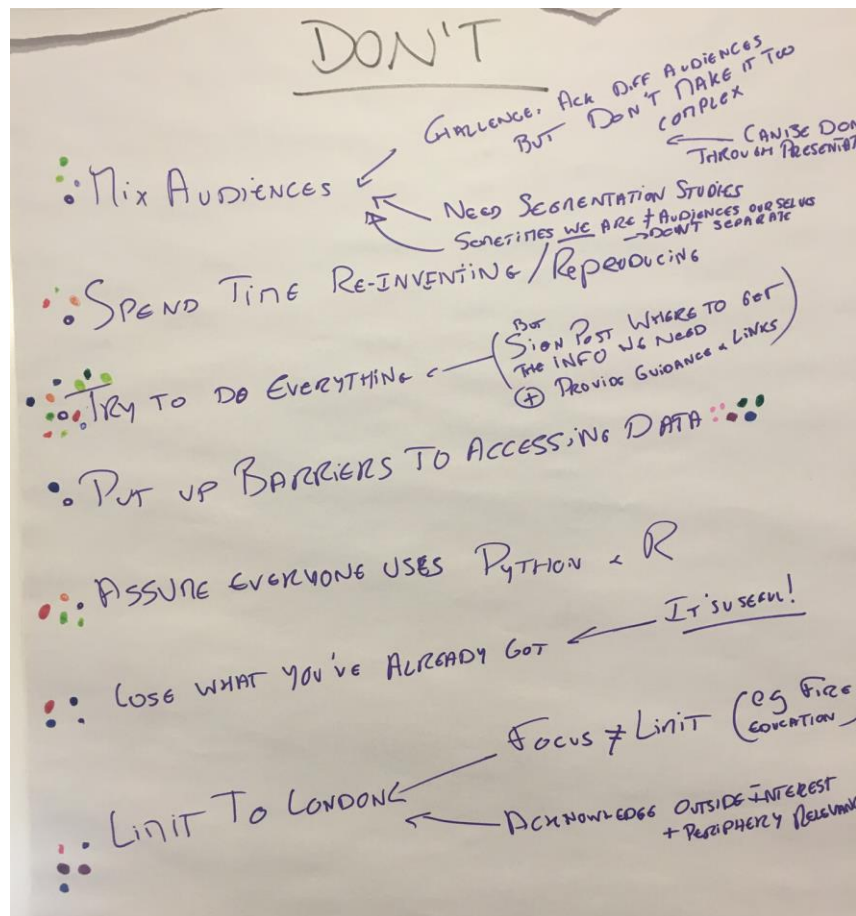 DON'T
CHALLENGE, ACK DIFF AUDIENCES
BUT DON'T MAKE IT TOO
COMPLEX
CAN BE DON
THROUGH PRESENTAT
MIX AUDIENCES
NEED SEGMENTATION STUDIES
SOMETIMES WE ARE ≠ AUDIENCES OURSELVES
→ DON'T SEPARATE
SPEND TIME RE-INVENTING / REPRODUCING
TRY TO DO EVERYTHING
(BUT
SIGN POST WHERE TO GET
THE INFO WE NEED
+ PROVIDE GUIDANCE & LINKS)
PUT UP BARRIERS TO ACCESSING DATA
ASSUME EVERYONE USES PYTHON & R
LOSE WHAT YOU'VE ALREADY GOT
IT'S USEFUL!
FOCUS ≠ LIMIT (eg FIRE
EDUCATION
LIMIT TO LONDON
ACKNOWLEDGE OUTSIDE INTEREST
+ PERIPHERY RELEVAN